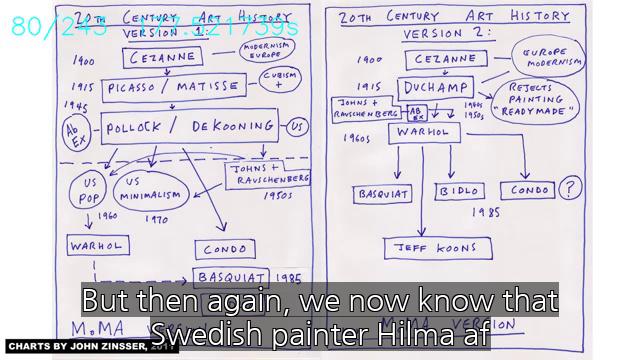 80/243 177.521739s
20TH CENTURY ART HISTORY
VERSION 1:
1900
CEZANNE
MODERNISM
EUROPE
1915
PICASSO / MATISSE
CUBISM
+
1945
Ab
Ex
POLLOCK / DEKOONING
US
JOHNS +
RAUSCHENBERG
1950s
US
POP
1960
US
MINIMALISM
1970
WARHOL
CONDO
BASQUIAT
1985
20TH CENTURY ART HISTORY
VERSION 2:
1900
CEZANNE
EUROPE
MODERNISM
1915
DUCHAMP
REJECTS
PAINTING
"READYMADE"
JOHNS +
RAUSCHENBERG
AB
EX
1940s
1950s
1960s
WARHOL
BASQUIAT
BIDLO
CONDO
?
1985
JEFF KOONS
MOMA VERSION
But then again, we now know that
Swedish painter Hilma af
CHARTS BY JOHN ZINSSER,